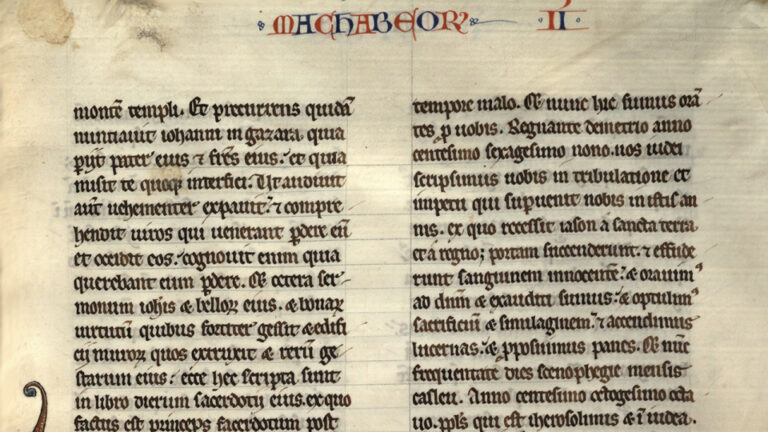 MACHABEOR II
montē templi. Et precurrens quidā
nuntiauit iohanni in gazara. quia
p̱ijt pater eius ⁊ frēs eius. et quia
misit te quoq̨ interfici. Ut audiuit
aūt uehementer expauit. ⁊ compre
hendit uiros qui uenerant p̱dere eū
et occidit eos. cognouit enim quia
querebant eum p̱dere. Et cetera ser
monum ioh̄is & belloꝝ eius. & bonaꝝ
uirtutū quibus fortiter gessit & edifi
cij muroꝝ quos extruxit & rerū ge
starum eius. ecce hec scripta sunt
in libro dierum sacerdotij eius. ex quo
factus est princeps sacerdotum post
tempore malo. Et nunc hic sumus orā
tes p̱ uobis. Regnante demetrio anno
centesimo sexagesimo nono. nos iudei
scripsimus uobis in tribulatione et
impetu qui sup̱uenit nobis in istis an
nis. ex quo recessit iason a sancta terra
et a regno; portam succenderunt. ⁊ effude
runt sanguinem innocentē. & orauimꝰ
ad dnm̄ & exauditi sumus. & optulimꝰ
sacrificiū & similaginem. ⁊ accendimus
lucernas. & p̱posuimus panes. Et nunc
frequentate dies scenophegie mensis
casleu. Anno centesimo octogesimo octa
uo. ppl̄s qui est iherosolimis & ī iudea.